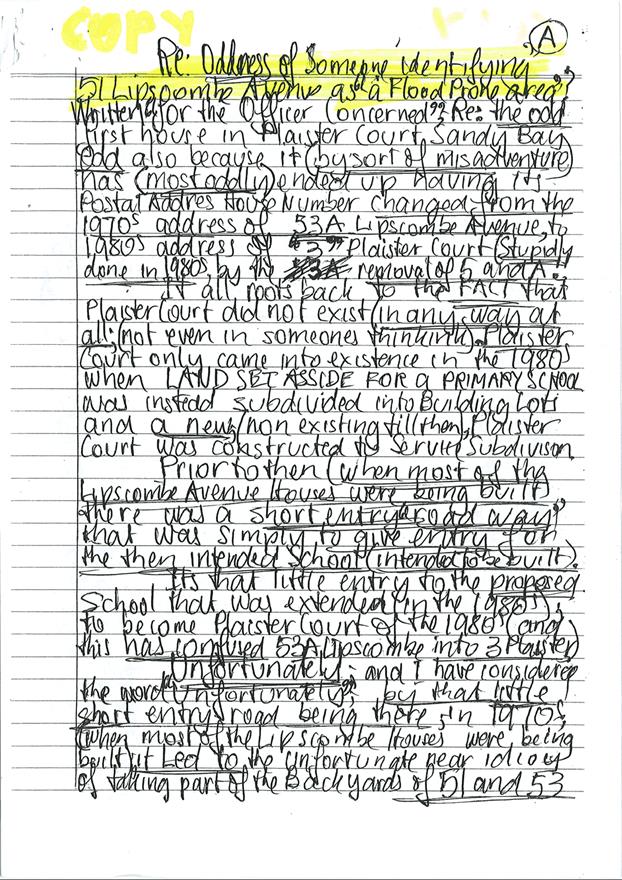 COPY
A
Re: Oddness of Someone identifying
51 Lipscombe Avenue as "a Flood Prone area"
Written "for the Officer Concerned" Re: the odd
first house in Plaister Court, Sandy Bay
Odd also because it (by sort of misadventure)
has (most oddly) ended up having its
Postal Addres House Number changed from the
1970s address of 53A Lipscombe Avenue, to
1980s address of "3" Plaister Court (Stupidly
done in 1980s, by the removal of 5 and A.
It all roots back to the FACT that
Plaister Court did not exist (in any way at
all; (not even in someones thinkinth). Plaister
Court only came into existence in the 1980s
when LAND SET ASSIDE FOR a PRIMARY SCHOOL
was instead subdivided into Building Lots
and a new/non existing till then, Plaister
Court was constructed to Service Subdivison.
Prior to then (when most of the
Lipscombe Avenue Houses were being built
there was a short entry "road way"
that was simply to give entry for
the then intended School (intended to be built).
Its that little entry to the proposed
School that was extended (in the 1980s),
to become Plaister Court of the 1980s (and
this has confused 53A Lipscombe into 3 Plaister)
Unfortunately - and I have considered
the word "Unfortunately"; by that little
short entry road being there, in 1970s,
(when most of the Lipscombe Houses were being
built it Led to the unfortunate near idiocy
of taking part of the Backyards of 51 and 53